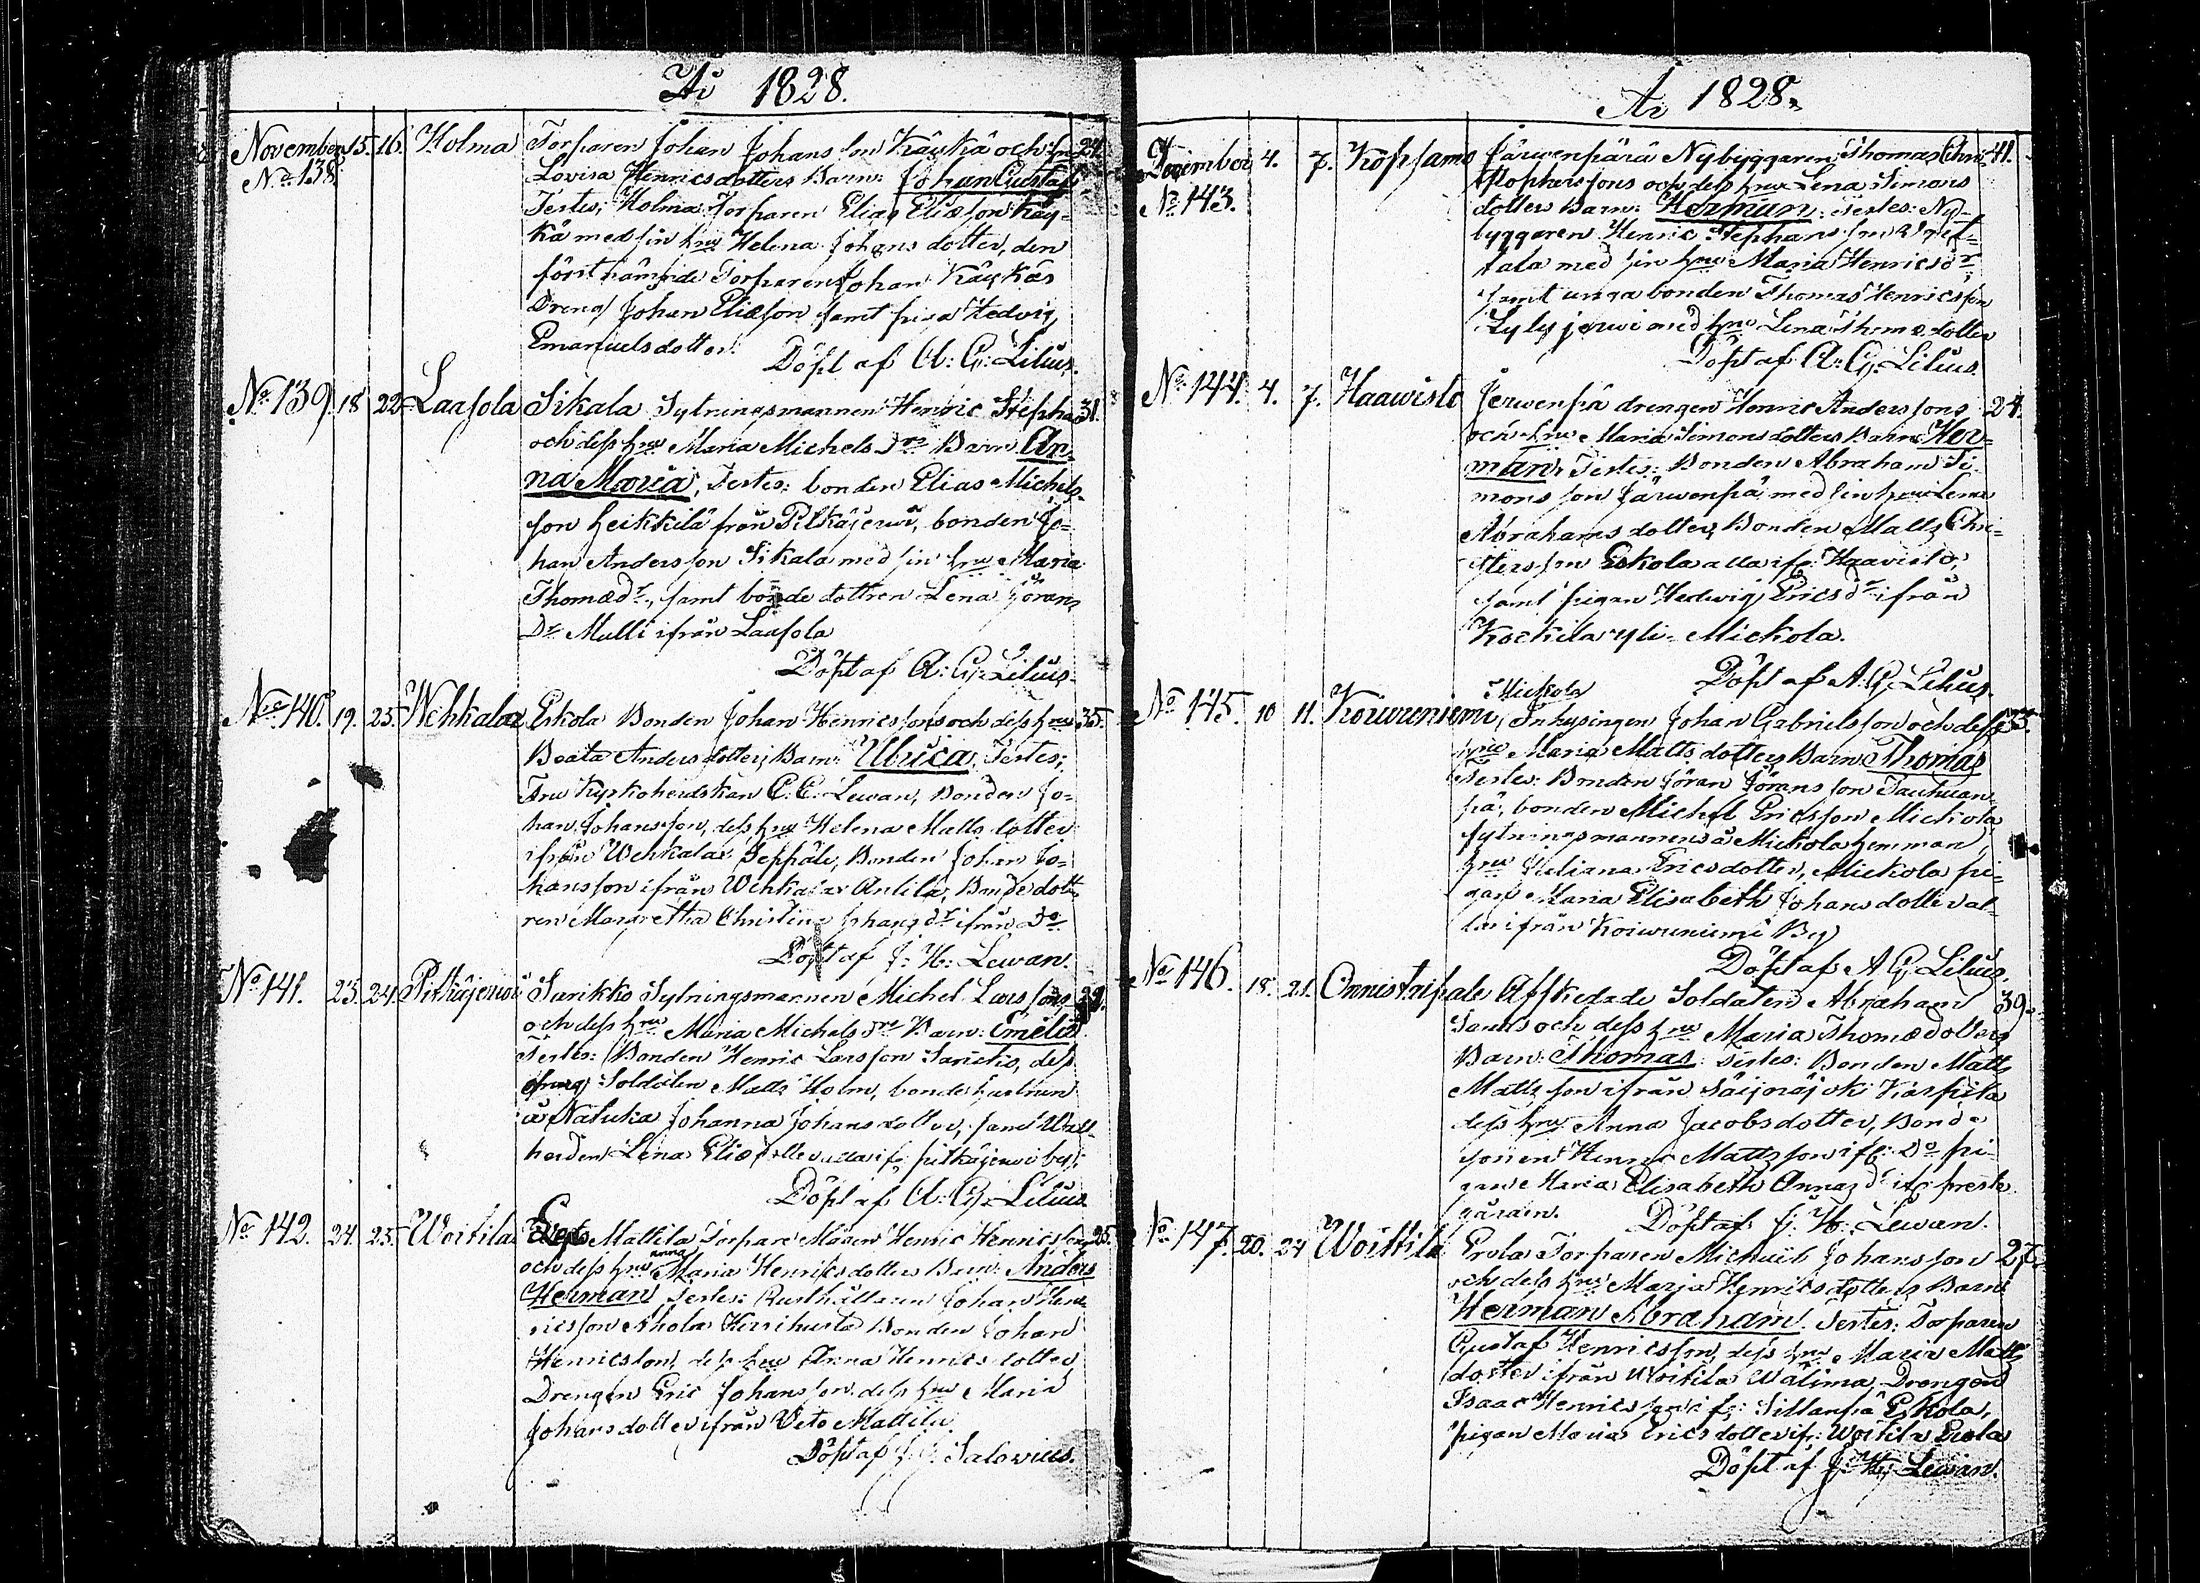 År 1828.
November 15. 16. Holma Torparen Johan Johansson Käykä och hru 24.
No 138. Lovisa Henricsdotters Barn: Johan Gustaf
Testes: Holma Torparen Elias Eliæson Käy-
kä med sin hru Helena Johansdotter, den
först nämnde Torparen Johan Käykäs
Dreng Johan Eliæson samt pigan Hedvig
Emanuelsdotter.
Döpt af A: G: Lilius.
No 139. 18 22 Laasola Sikala Sytningsmannen Henric Stepha 31.
och dess hru Maria Michels Drs Barn An-
na Maria, Testes: bonden Elias Michels-
son Heikkilä från Pitkäjerwi, bonden Jo-
han Andersson Sikala med sin hru Maria
Thomædr, samt bonde dottren Lena Görans
Dr Mulli ifrån Laasola
Döpt af A: G: Lilius.
No 140. 19. 23. Wehkalax Eskola Bonden Johan Henricssons och dess hru 35.
Beata Andersdotters Barn: Ulrica, Testes:
Fru Kyrkoherdskan C. E. Lewan, Bonden Jo-
han Johansson, dess hru Helena Matts dotter
ifrån Wehkalax Seppäle, Bonden Johan Jo-
hansson ifrån Wehkalax Antila, Bondedott-
ren Margretha Christina Johans dr ifrån Do
Döpt af J: H: Lewan.
No 141. 23. 24. Pitkäjerwi Sarikko Sytningsmannen Michel Larssons 29.
och dess hru Maria Michels drs Barn: Emelie
Testes: Bonden Henric Larsson Sarikko, dess
Soldaten Matts Holm, bonde hustrun
å Natuka Johanna Johansdotter, samt
Lena Eliædotter alla ifr pitkäjerwi by.
Döpt af A: G: Lilius.
No 142. 24. 25. Woitila Mattila Torpare Mågen Henric Henricsson 25.
och dess hru Anna Maria Henricsdotters Barn: Anders
Herman Testes: Rusthållaren Johan Hen-
ricsson Bonden Johan
Henricsson, dess hru Anna Henricsdotter,
Drengen Eric Johansson dess hru Maria
Johansdotter ifrån Mattila.
Döpt af Salovius.
År 1828.
December 4. 7. Kopsamo Järwenpärä Nybyggaren Thomas Chri- 41.
No 143. stophersons och dess hru Lena Simons
dotters Barn: Herman. Testes: Ny-
byggaren Henric Stephansson
med sin hru Maria Henricsdr
samt unga bonden Thomas Henricsson
Lylyjerwi med hru Lena Thomædotter
Döpt af A: G: Lilius.
No 144. 4. 7. Haawisto Jerwenpä drengen Henric Anderssons 24.
och hru Maria Simonsdotters Barn: Her-
man, Testes: Bonden Abraham Si-
monsson Järwenpä med sin hru Lena
Abrahams dotter, Bonden Matts Chri-
sterson Eskola alla ifr. Haavisto,
samt pigan Hedwig Ericsdr ifrån
Kockila yli-Mickola.
Döpt af A: G: Lilius.
No 145. 10 11. Koiwuniemi, Mickola Inhysingen Johan Gabrielsson och dess 33.
hru Maria Mattsdotters Barn Thomas
Testes: Bonden Jöran Göransson
bonden Michel Ericsson Mickola
sytningsmannens å Mickola hemman
hru Juliana Ericsdotter, Mickola pi-
gan Maria Elisabeth Johansdotter al-
la ifrån Koiwuniemi By
Döpt af A: G: Lilius.
No 146. 18. 21. Onnistaipale Afskedade Soldaten Abraham 39.
Sands och dess hru Maria Thomædotters
Barn: Thomas. Testes: Bonden Matts
Mattsson ifrån Karpila
dess hru Anna Jacobsdotter, Bonde
sonen Henric Mattsson ifr: Do pi-
gan Maria Elisabeth Annas dr ifr. preste
gården.
Döpt af J. H: Lewan.
No 147. 20. 24 Woittila Erola Torparen Michael Johansson 27.
och dess hru Maria Henricsdotters Barn
Herman Abraham. Testes: Torparen
Gustaf Henricsson, dess hru Maria Matts
dotter ifrån Woitila Wälimä, Drengen
Isaac Henricsson ifr: Sillanpä Eskola,
pigan Maria Ericsdotter ifr: Woitila Erola
Döpt af J: H: Lewan.